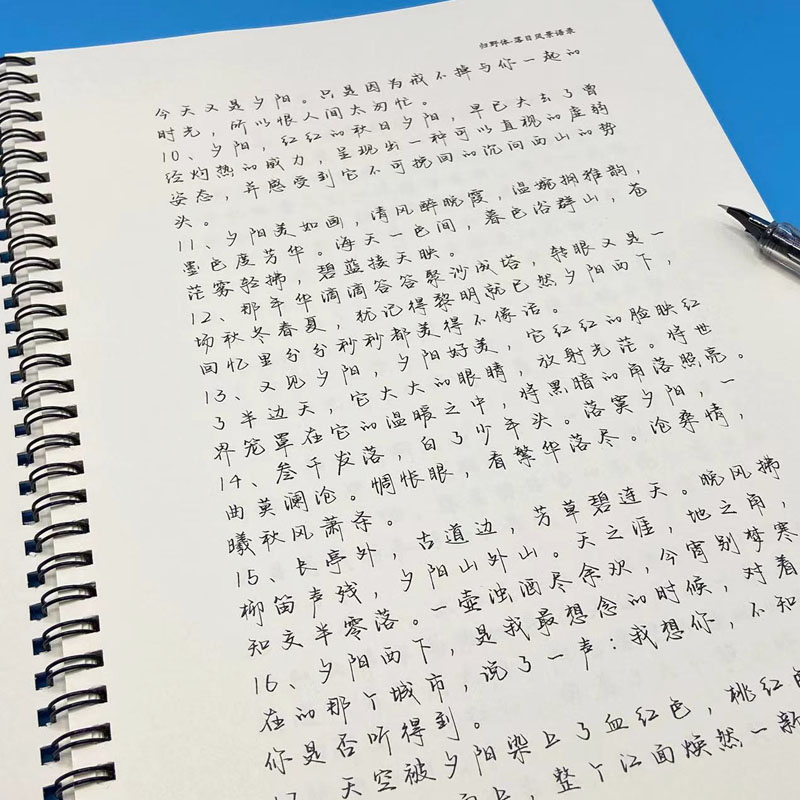 归野体·落日风景语录
今天又是夕阳。只是因为戒不掉与你一起的
时光，所以恨人间太匆忙。
10、夕阳，红红的秋日夕阳，早已失去了曾
经灼热的威力，呈现出一种可以直视的虚弱
姿态，并感受到它不可挽回的沉向西山的势
头。
11、夕阳美如画，清风醉晚霞，温婉拥雅韵，
墨色度芳华。海天一色间，暮色浴群山，苍
茫雾轻拂，碧蓝接天映。
12、那年华滴滴答答聚沙成塔，转眼又是一
场秋冬春夏，犹记得黎明就已然夕阳西下，
回忆里分分秒秒都美得不像话。
13、又见夕阳，夕阳好美，它红红的脸映红
了半边天，它大大的眼睛，放射光茫。将世
界笼罩在它的温暖之中，将黑暗的角落照亮。
14、叁千发落，白了少年头。落寞夕阳，一
曲莫澜沧。惆怅眼，看繁华落尽。沧桑情，
曦秋风萧条。
15、长亭外，古道边，芳草碧连天。晚风拂
柳笛声残，夕阳山外山。天之涯，地之角，
知交半零落。一壶浊酒尽余欢，今宵别梦寒
16、夕阳西下，是我最想念的时候，对着
在的那个城市，说了一声：我想你，不知
你是否听得到。
17、天空被夕阳染上了血红色，桃红色
整个江面焕然一新